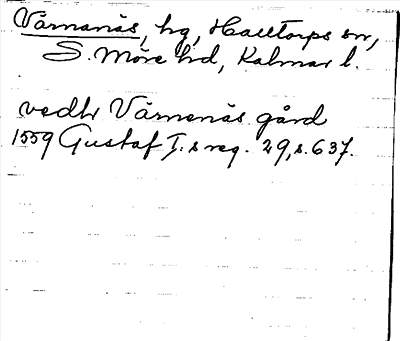 Värnanäs, hg, Halltorps sn,
S. Möre hd, Kalmar l.
vedtr Värnenäs gård
1559 Gustaf I:s reg. 29, s. 637.